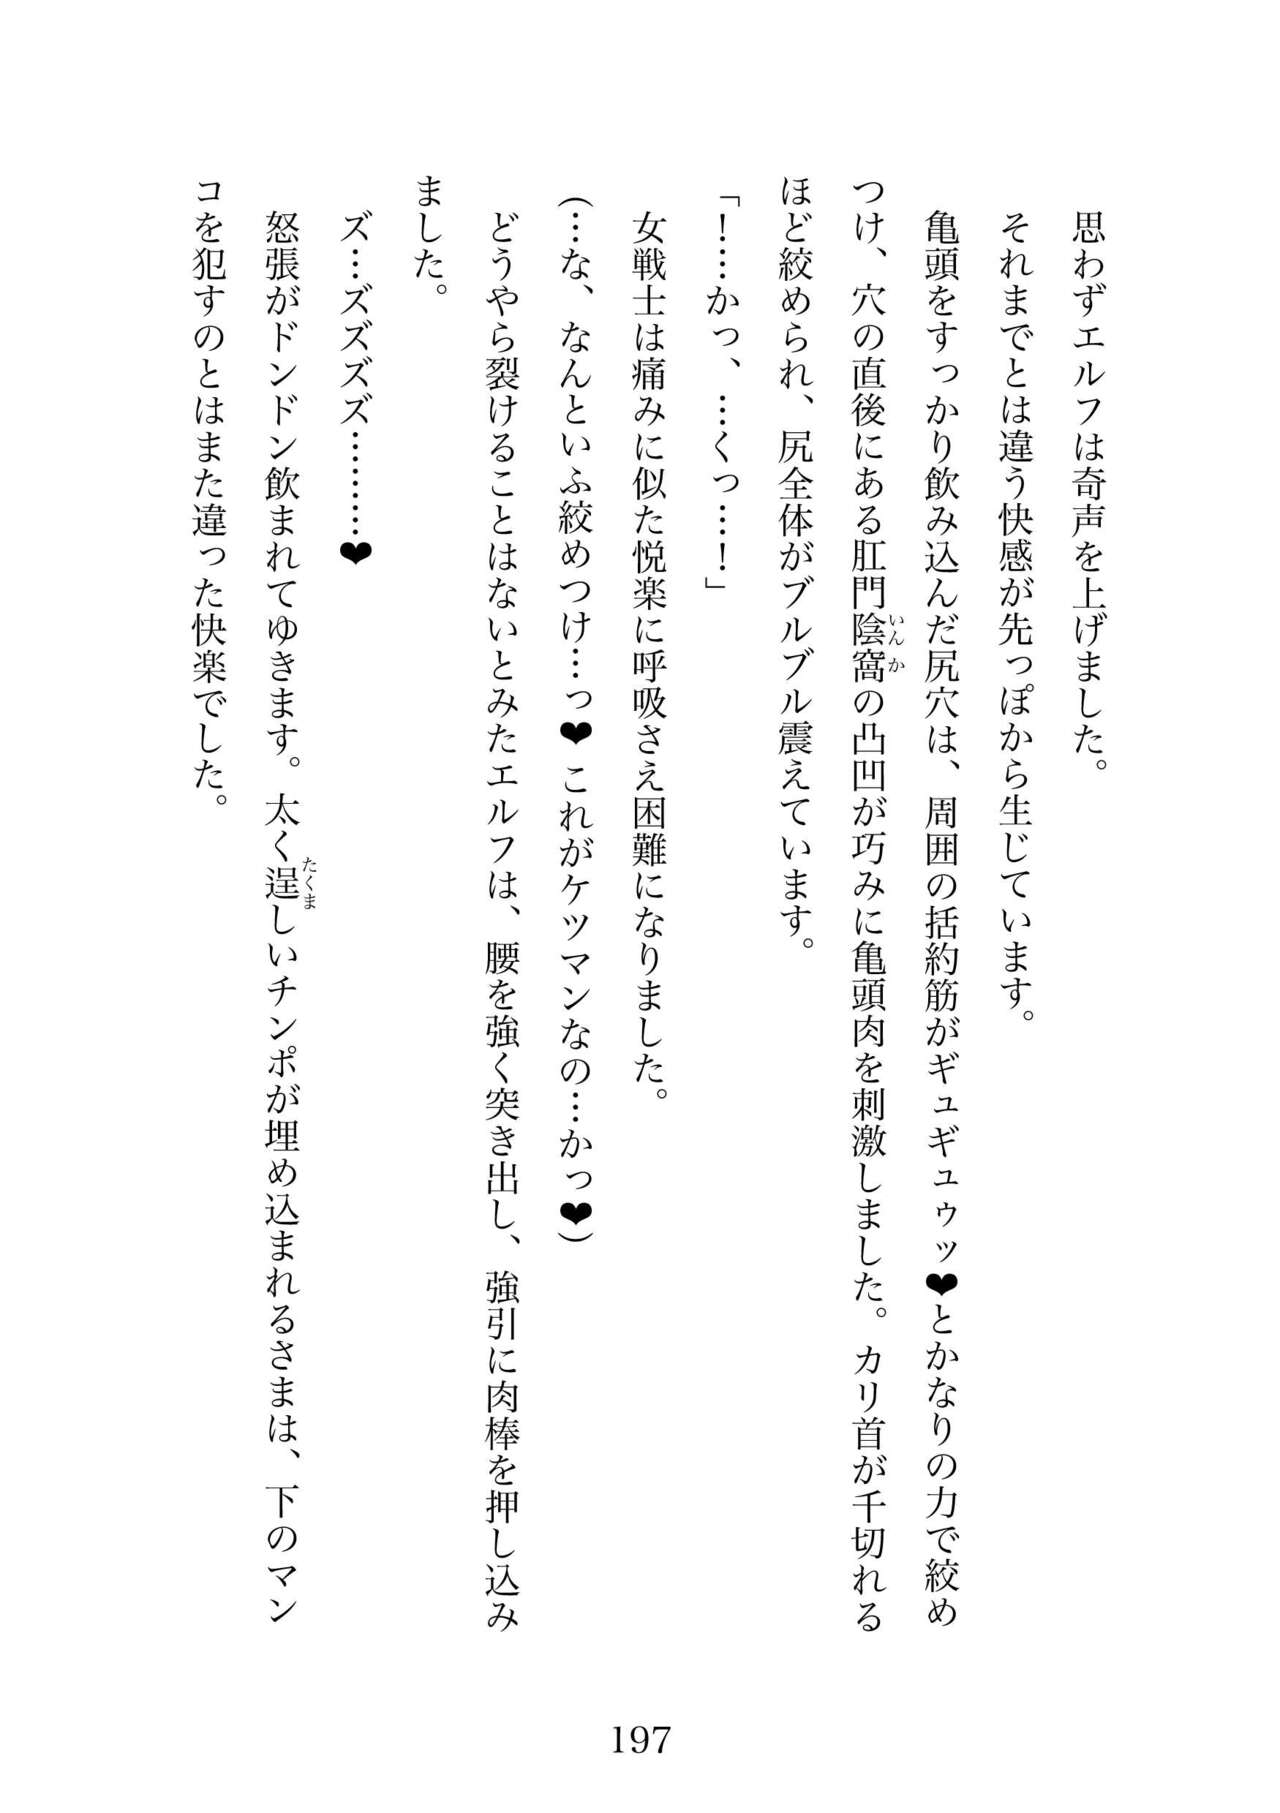 思わずエルフは奇声を上げました。
それまでとは違う快感が先っぽから生じています。
亀頭をすっかり飲み込んだ尻穴は、周囲の括約筋がギュギュゥッ❤とかなりの力で絞め
つけ、穴の直後にある肛門陰窩の凸凹が巧みに亀頭肉を刺激しました。カリ首が千切れる
いんか
ほど絞められ、尻全体がブルブル震えています。
「！…かっ、…くっ…！」
女戦士は痛みに似た悦楽に呼吸さえ困難になりました。
(…な、なんといふ絞めつけ…っ❤これがケツマンなの…かっ❤)
どうやら裂けることはないとみたエルフは、腰を強く突き出し、強引に肉棒を押し込み
ました。
ズ…ズズズズ………❤
怒張がドンドン飲まれてゆきます。太く逞しいチンポが埋め込まれるさまは、下のマン
たくま
コを犯すのとはまた違った快楽でした。
197